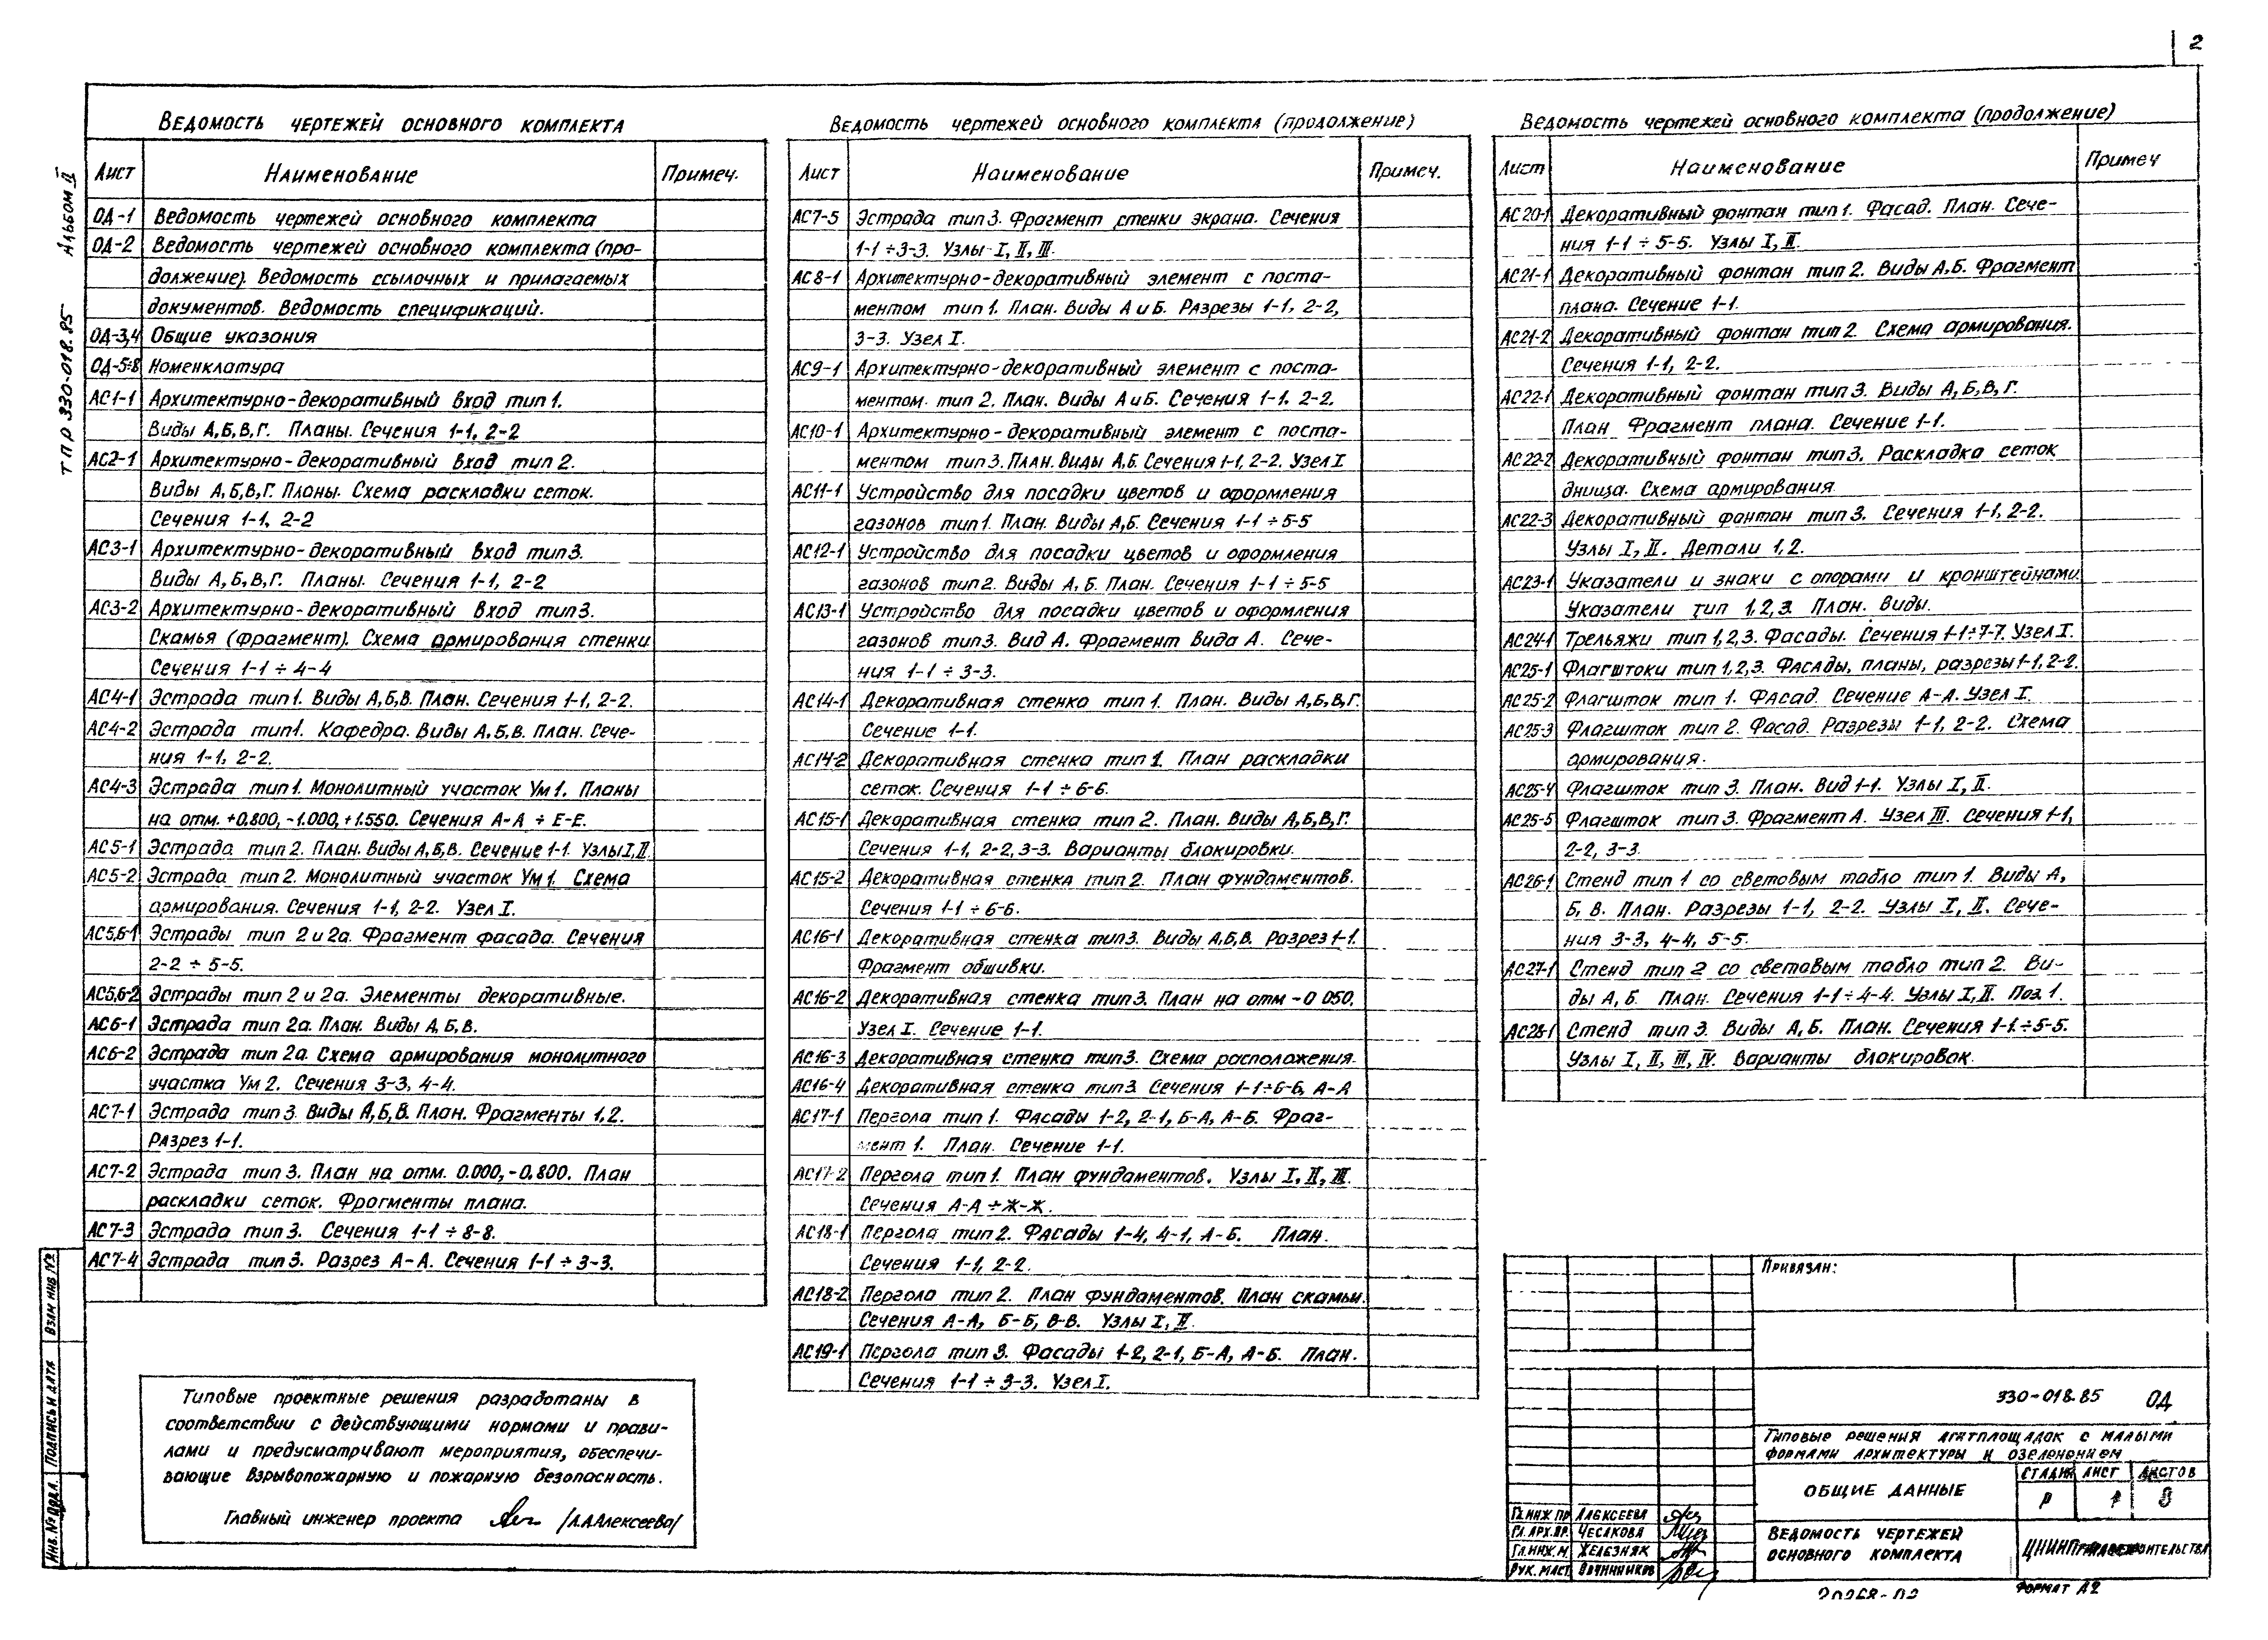 2
Альбом II
ТПР 330-018.85
Ведомость чертежей основного комплекта
Лист Наименование Примеч.
ОД-1 Ведомость чертежей основного комплекта
ОД-2 Ведомость чертежей основного комплекта (про-
должение). Ведомость ссылочных и прилагаемых
документов. Ведомость спецификаций.
ОД-3,4 Общие указания
ОД-5÷8 Номенклатура
АС1-1 Архитектурно-декоративный вход тип 1.
Виды А,Б,В,Г. Планы. Сечения 1-1, 2-2
АС2-1 Архитектурно-декоративный вход тип 2.
Виды А,Б,В,Г. Планы. Схема раскладки сеток.
Сечения 1-1, 2-2
АС3-1 Архитектурно-декоративный вход тип 3.
Виды А,Б,В,Г. Планы. Сечения 1-1, 2-2
АС3-2 Архитектурно-декоративный вход тип 3.
Скамья (фрагмент). Схема армирования стенки
Сечения 1-1 ÷ 4-4
АС4-1 Эстрада тип 1. Виды А,Б,В. План. Сечения 1-1, 2-2.
АС4-2 Эстрада тип 1. Кафедра. Виды А,Б,В. План. Сече-
ния 1-1, 2-2.
АС4-3 Эстрада тип 1. Монолитный участок Ум 1. Планы
на отм. +0.800, -1.000, +1.550. Сечения А-А ÷ Е-Е.
АС5-1 Эстрада тип 2. План. Виды А,Б,В. Сечение 1-1. Узлы I, II.
АС5-2 Эстрада тип 2. Монолитный участок Ум 1. Схема
армирования. Сечения 1-1, 2-2. Узел I.
АС5,6-1 Эстрады тип 2 и 2а. Фрагмент фасада. Сечения
2-2 ÷ 5-5.
АС5,6-2 Эстрады тип 2 и 2а. Элементы декоративные.
АС6-1 Эстрада тип 2а. План. Виды А,Б,В.
АС6-2 Эстрада тип 2а. Схема армирования монолитного
участка Ум 2. Сечения 3-3, 4-4.
АС7-1 Эстрада тип 3. Виды А,Б,В. План. Фрагменты 1,2.
Разрез 1-1.
АС7-2 Эстрада тип 3. План на отм. 0.000, -0.800. План
раскладки сеток. Фрагменты плана.
АС7-3 Эстрада тип 3. Сечения 1-1 ÷ 8-8.
АС7-4 Эстрада тип 3. Разрез А-А. Сечения 1-1 ÷ 3-3.
Типовые проектные решения разработаны в
соответствии с действующими нормами и прави-
лами и предусматривают мероприятия, обеспечи-
вающие взрывопожарную и пожарную безопасность.
Главный инженер проекта /Л.А.Алексеева/
Ведомость чертежей основного комплекта (продолжение)
Лист Наименование Примеч.
АС7-5 Эстрада тип 3. Фрагмент стенки экрана. Сечения
1-1 ÷ 3-3. Узлы I, II, III.
АС8-1 Архитектурно-декоративный элемент с поста-
ментом тип 1. План. Виды А и Б. Разрезы 1-1, 2-2,
3-3. Узел I.
АС9-1 Архитектурно-декоративный элемент с поста-
ментом тип 2. План. Виды А и Б. Сечения 1-1. 2-2.
АС10-1 Архитектурно-декоративный элемент с поста-
ментом тип 3. План. Виды А,Б. Сечения 1-1, 2-2. Узел I
АС11-1 Устройство для посадки цветов и оформления
газонов тип 1. План. Виды А,Б. Сечения 1-1 ÷ 5-5
АС12-1 Устройство для посадки цветов и оформления
газонов тип 2. Виды А, Б. План. Сечения 1-1 ÷ 5-5
АС13-1 Устройство для посадки цветов и оформления
газонов тип 3. Вид А. Фрагмент вида А. Сече-
ния 1-1 ÷ 3-3.
АС14-1 Декоративная стенка тип 1. План. Виды А,Б,В,Г.
Сечение 1-1.
АС14-2 Декоративная стенка тип 1. План раскладки
сеток. Сечения 1-1 ÷ 6-6.
АС15-1 Декоративная стенка тип 2. План. Виды А,Б,В,Г.
Сечения 1-1, 2-2, 3-3. Варианты блокировки.
АС15-2 Декоративная стенка тип 2. План фундаментов.
Сечения 1-1 ÷ 6-6.
АС16-1 Декоративная стенка тип 3. Виды А,Б,В. Разрез 1-1.
Фрагмент обшивки.
АС16-2 Декоративная стенка тип 3. План на отм -0 050.
Узел I. Сечение 1-1.
АС16-3 Декоративная стенка тип 3. Схема расположения.
АС16-4 Декоративная стенка тип 3 Сечения 1-1÷6-6, А-А
АС17-1 Пергола тип 1. Фасады 1-2, 2-1, Б-А, А-Б. Фраг-
мент 1. План. Сечение 1-1.
АС17-2 Пергола тип 1. План фундаментов. Узлы I, II, III.
Сечения А-А ÷ Ж-Ж.
АС18-1 Пергола тип 2. Фасады 1-4, 4-1, А-Б. План.
Сечения 1-1, 2-2.
АС18-2 Пергола тип 2. План фундаментов. План скамьи.
Сечения А-А, Б-Б, В-В. Узлы I, II.
АС19-1 Пергола тип 3. Фасады 1-2, 2-1, Б-А, А-Б. План.
Сечения 1-1 ÷ 3-3. Узел I.
Ведомость чертежей основного комплекта (продолжение)
Лист Наименование Примеч
АС20-1 Декоративный фонтан тип 1. Фасад. План. Сече-
ния 1-1 ÷ 5-5. Узлы I, II.
АС21-1 Декоративный фонтан тип 2. Виды А,Б. Фрагмент
плана. Сечение 1-1.
АС21-2 Декоративный фонтан тип 2. Схема армирования.
Сечения 1-1, 2-2.
АС22-1 Декоративный фонтан тип 3. Виды А,Б,В,Г.
План Фрагмент плана. Сечение 1-1.
АС22-2 Декоративный фонтан тип 3. Раскладка сеток
днища. Схема армирования
АС22-3 Декоративный фонтан тип 3. Сечения 1-1, 2-2.
Узлы I, II. Детали 1,2.
АС23-1 Указатели и знаки с опорами и кронштейнами
Указатели тип 1,2,3. План. Виды.
АС24-1 Трельяжи тип 1,2,3. Фасады. Сечения 1-1÷7-7. Узел I.
АС25-1 Флагштоки тип 1,2,3. Фасады, планы, разрезы 1-1, 2-2.
АС25-2 Флагшток тип 1. Фасад. Сечение А-А. Узел I.
АС25-3 Флагшток тип 2. Фасад. Разрезы 1-1, 2-2. Схема
армирования.
АС25-4 Флагшток тип 3. План. Вид 1-1. Узлы I, II.
АС25-5 Флагшток тип 3. Фрагмент А. Узел III. Сечения 1-1,
2-2, 3-3.
АС26-1 Стенд тип 1 со световым табло тип 1. Виды А,
Б, В. План. Разрезы 1-1, 2-2. Узлы I, II. Сече-
ния 3-3, 4-4, 5-5.
АС27-1 Стенд тип 2 со световым табло тип 2. Ви-
ды А, Б. План. Сечения 1-1 ÷ 4-4. Узлы I, II. Поз 1.
АС28-1 Стенд тип 3. Виды А,Б. План. Сечения 1-1.÷5-5.
Узлы I, II, III, IV. Варианты блокировок.
Привязан:
330-018.85 ОД
Типовые решения агитплощадок с малыми
формами архитектуры и озеленением
Общие данные
Стадия Лист Листов
Р 1 8
Ведомость чертежей
основного комплекта
Гл.инж.пр Алексеева
Гл.арх.пр. Чесакова
Гл.инж.м. Железняк
Рук.маст. Овчинников
Формат А2
Инв.№ подл. Подпись и дата Взам инв №